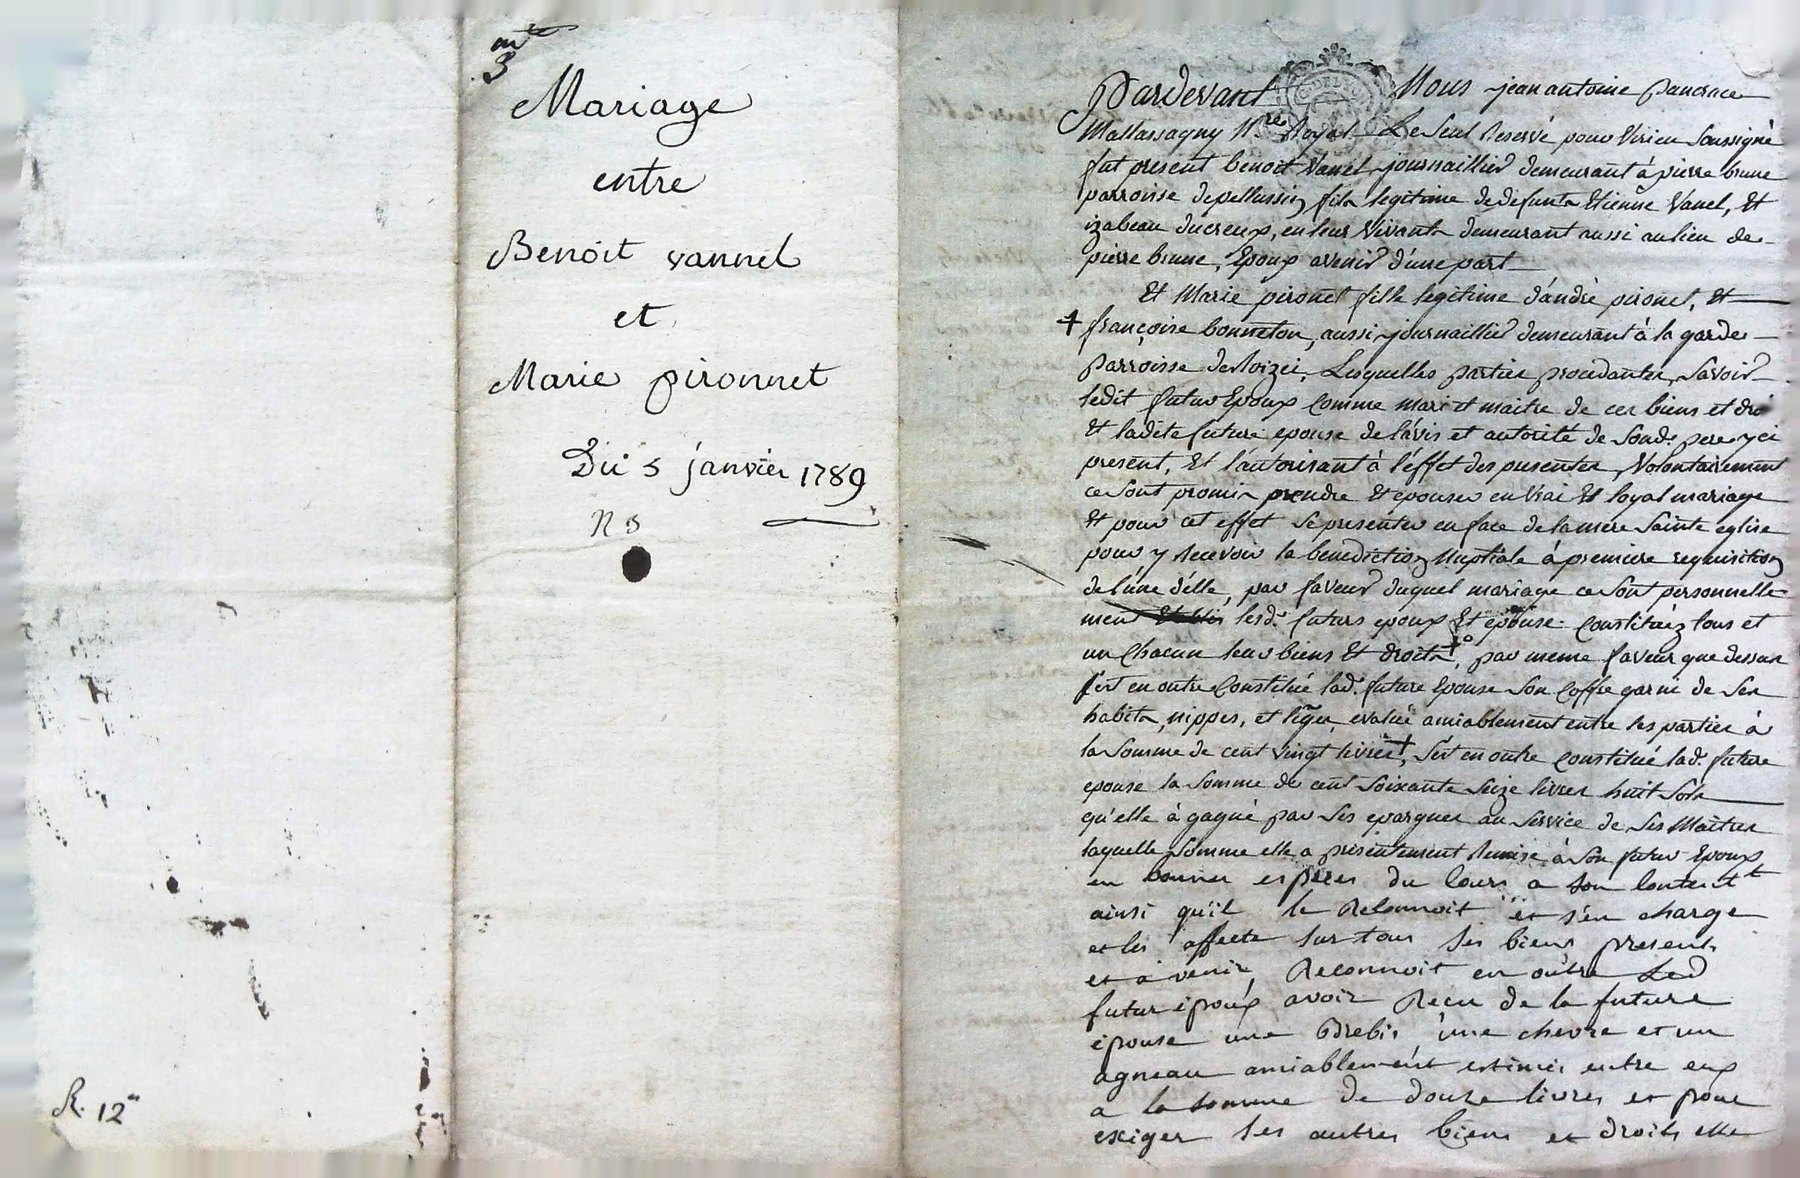 m
3
Mariage
entre
Benoit vannel
et
Marie pironnet
Du 5 janvier 1789
N 3
R. 12
Pardevant Nous jean antoine pancrace
Mallassagny N.re Royal Le Seul Reservé pour Virieu Soussigné
fut present benoit Vanel journaillier demeurant à pierre brune
parroisse de pellussin fils legitime de defunts Etienne Vanel, Et
izabeau ducreux, en leur Vivants demeurant aussi au lieu de
pierre brune, Epoux avenir d'une part
Et Marie pironet fille legitime d'andré pironet, Et
+ françoise bonneton, aussi journaillier demeurant à la garde
parroisse de Roizei, Lesquelles parties procedantes, Savoir
ledit futur Epoux Comme Mari et maitre de ces biens et dro
Et ladite future epouse de l'avis et autorité de Sond. pere yci
present, Et l'autorisant à l'effet des presentes, Volontairement
ce Sont promis prendre Et epouser en Vrai Et loyal mariage
Et pour cet effet Se presenter en face de la mere Sainte eglise
pour y recevoir la benediction Nuptiale à premiere requisition
de l'une d'elle, par faveur duquel mariage ce Sont personnelle
ment lesd. futurs epoux Et epouse Constituéz tous et
un Chacun leur biens Et droits +, par meme faveur que dessus
s'est en outre Constitué lad. future Epouse Son Coffre garni de Ses
habits, nippes, et linges, evalué amiablement entre les parties à
la Somme de cent Vingt livres +, S'est en outre Constitué lad. future
epouse la Somme de cent Soixante Seize livres huit Sols
qu'elle à gagné par Ses epargnes au Service de Ses Maitres
laquelle Somme elle a présentement Remise à Son futur Epoux
en bonnes espèces du Cours a son Content.t
ainsi qu'il le Reconnoit et s'en charge
et les affecte sur tous ses biens presents
et à venir, Reconnoit en outre Led
futur époux avoir Recu de la future
épouse une Brebis, une chevre et un
agneau amiablement estimés entre eux
a la somme de douze livres et pour
exiger ses autres biens et droits elle